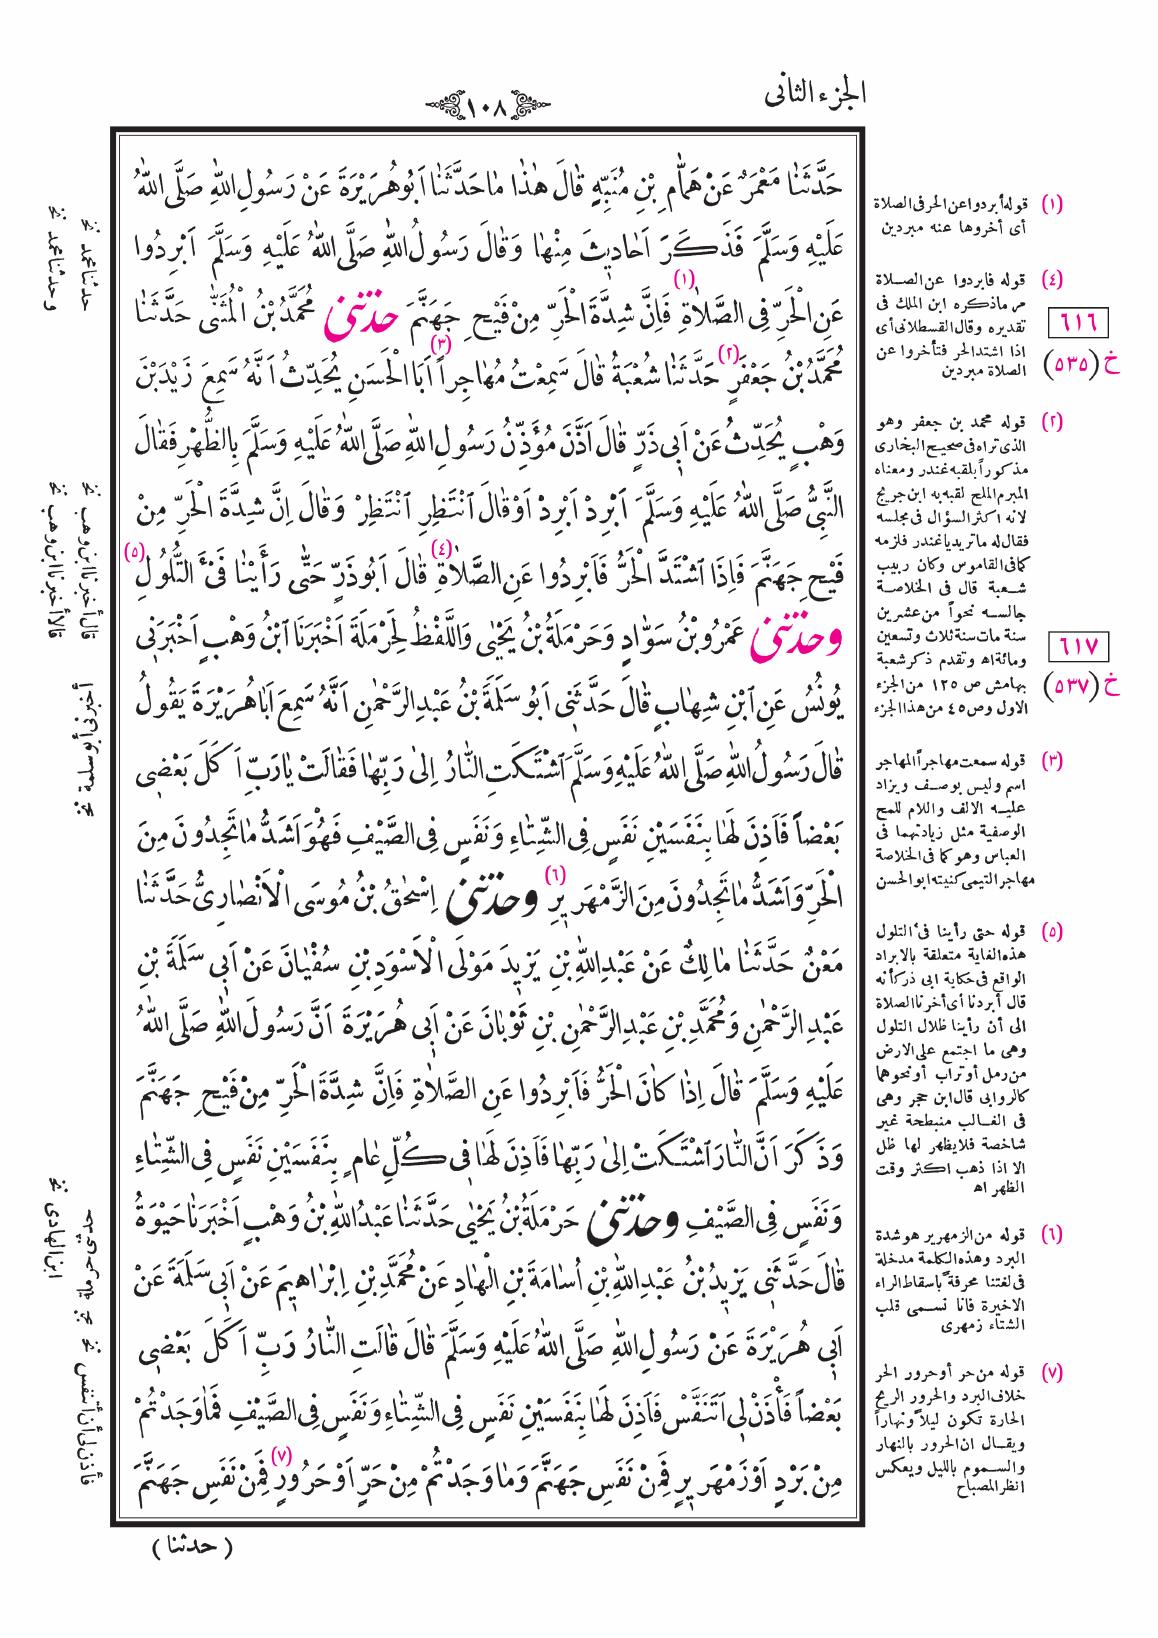 الجزء الثانى
١٠٨
حَدَّثَنَا مَعْمَرٌ عَنْ هَمَّامِ بْنِ مُنَبِّهٍ قَالَ هٰذَا مَا حَدَّثَنَا اَبُوهُرَيْرَةَ عَنْ رَسُولِ اللهِ صَلَّى اللهُ
عَلَيْهِ وَسَلَّمَ فَذَكَرَ اَحَادِيثَ مِنْهَا وَقَالَ رَسُولُ اللهِ صَلَّى اللهُ عَلَيْهِ وَسَلَّمَ اَبْرِدُوا
عَنِ الْحَرِّ فِى الصَّلَاةِ (١) فَاِنَّ شِدَّةَ الْحَرِّ مِنْ فَيْحِ جَهَنَّمَ حدثنى مُحَمَّدُ بْنُ الْمُثَنّٰى حَدَّثَنَا
مُحَمَّدُ بْنُ جَعْفَرٍ (٢) حَدَّثَنَا شُعْبَةُ قَالَ سَمِعْتُ مُهَاجِراً (٣) اَبَا الْحَسَنِ يُحَدِّثُ اَنَّهُ سَمِعَ زَيْدَ بْنَ
وَهْبٍ يُحَدِّثُ عَنْ اَبِى ذَرٍّ قَالَ اَذَّنَ مُؤَذِّنُ رَسُولِ اللهِ صَلَّى اللهُ عَلَيْهِ وَسَلَّمَ بِالظُّهْرِ فَقَالَ
النَّبِىُّ صَلَّى اللهُ عَلَيْهِ وَسَلَّمَ اَبْرِدْ اَبْرِدْ اَوْ قَالَ انْتَظِرِ انْتَظِرْ وَقَالَ اِنَّ شِدَّةَ الْحَرِّ مِنْ
فَيْحِ جَهَنَّمَ فَاِذَا اشْتَدَّ الْحَرُّ فَاَبْرِدُوا عَنِ الصَّلَاةِ (٤) قَالَ اَبُوذَرٍّ حَتّٰى رَأَيْنَا فَىْءَ التُّلُولِ (٥)
وحدثنى عَمْرُو بْنُ سَوَّادٍ وَحَرْمَلَةُ بْنُ يَحْيٰى وَاللَّفْظُ لِحَرْمَلَةَ اَخْبَرَنَا ابْنُ وَهْبٍ اَخْبَرَنِى
يُونُسُ عَنِ ابْنِ شِهَابٍ قَالَ حَدَّثَنِى اَبُو سَلَمَةَ بْنُ عَبْدِ الرَّحْمٰنِ اَنَّهُ سَمِعَ اَبَا هُرَيْرَةَ يَقُولُ
قَالَ رَسُولُ اللهِ صَلَّى اللهُ عَلَيْهِ وَسَلَّمَ اشْتَكَتِ النَّارُ اِلٰى رَبِّهَا فَقَالَتْ يَا رَبِّ اَكَلَ بَعْضِى
بَعْضاً فَاَذِنَ لَهَا بِنَفَسَيْنِ نَفَسٍ فِى الشِّتَاءِ وَنَفَسٍ فِى الصَّيْفِ فَهُوَ اَشَدُّ مَا تَجِدُونَ مِنَ
الْحَرِّ وَاَشَدُّ مَا تَجِدُونَ مِنَ الزَّمْهَرِيرِ (٦) وحدثنى اِسْحٰقُ بْنُ مُوسَى الْاَنْصَارِىُّ حَدَّثَنَا
مَعْنٌ حَدَّثَنَا مَالِكٌ عَنْ عَبْدِ اللهِ بْنِ يَزِيدَ مَوْلَى الْاَسْوَدِ بْنِ سُفْيَانَ عَنْ اَبِى سَلَمَةَ بْنِ
عَبْدِ الرَّحْمٰنِ وَمُحَمَّدِ بْنِ عَبْدِ الرَّحْمٰنِ بْنِ ثَوْبَانَ عَنْ اَبِى هُرَيْرَةَ اَنَّ رَسُولَ اللهِ صَلَّى اللهُ
عَلَيْهِ وَسَلَّمَ قَالَ اِذَا كَانَ الْحَرُّ فَاَبْرِدُوا عَنِ الصَّلَاةِ فَاِنَّ شِدَّةَ الْحَرِّ مِنْ فَيْحِ جَهَنَّمَ
وَذَكَرَ اَنَّ النَّارَ اشْتَكَتْ اِلٰى رَبِّهَا فَاَذِنَ لَهَا فِى كُلِّ عَامٍ بِنَفَسَيْنِ نَفَسٍ فِى الشِّتَاءِ
وَنَفَسٍ فِى الصَّيْفِ وحدثنى حَرْمَلَةُ بْنُ يَحْيٰى حَدَّثَنَا عَبْدُ اللهِ بْنُ وَهْبٍ اَخْبَرَنَا حَيْوَةُ
قَالَ حَدَّثَنِى يَزِيدُ بْنُ عَبْدِ اللهِ بْنِ اُسَامَةَ بْنِ الْهَادِ عَنْ مُحَمَّدِ بْنِ اِبْرَاهِيمَ عَنْ اَبِى سَلَمَةَ عَنْ
اَبِى هُرَيْرَةَ عَنْ رَسُولِ اللهِ صَلَّى اللهُ عَلَيْهِ وَسَلَّمَ قَالَ قَالَتِ النَّارُ رَبِّ اَكَلَ بَعْضِى
بَعْضاً فَأْذَنْ لِى اَتَنَفَّسْ فَاَذِنَ لَهَا بِنَفَسَيْنِ نَفَسٍ فِى الشِّتَاءِ وَنَفَسٍ فِى الصَّيْفِ فَمَا وَجَدْتُمْ
مِنْ بَرْدٍ اَوْ زَمْهَرِيرٍ فَمِنْ نَفَسِ جَهَنَّمَ وَمَا وَجَدْتُمْ مِنْ حَرٍّ اَوْ حَرُورٍ (٧) فَمِنْ نَفَسِ جَهَنَّمَ
( حدثنا )
(١) قوله أبردوا عن الحر فى الصلاة
أى أخروها عنه مبردين
(٤) قوله فابردوا عن الصلاة
مر ماذكره ابن الملك فى
تقديره وقال القسطلانى أى
اذا اشتد الحر فتأخروا عن
الصلاة مبردين
٦١٦
خ (٥٣٥)
(٢) قوله محمد بن جعفر وهو
الذى تراه فى صحيح البخارى
مذكوراً بلقبه غندر ومعناه
المبرم الملح لقبه به ابن جريج
لانه اكثر السؤال فى مجلسه
فقال له ماتريد ياغندر فلزمه
كما فى القاموس وكان ربيب
شعبة قال فى الخلاصة
جالسه نحواً من عشرين
سنة مات سنة ثلاث وتسعين
ومائة اه وتقدم ذكر شعبة
بهامش ص ١٢٥ من الجزء
الاول وص ٤٥ من هذا الجزء
٦١٧
خ (٥٣٧)
(٣) قوله سمعت مهاجراً المهاجر
اسم وليس بوصف ويزاد
عليه الالف واللام للمح
الوصفية مثل زيادتهما فى
العباس وهو كما فى الخلاصة
مهاجر التيمى كنيته ابوالحسن
(٥) قوله حتى رأينا فىء التلول
هذه الغاية متعلقة بالابراد
الواقع فى حكاية ابى ذر كأنه
قال أبردنا أى أخرنا الصلاة
الى أن رأينا ظلال التلول
وهى ما اجتمع على الارض
من رمل أو تراب أو نحوهما
كالروابى قال ابن حجر وهى
فى الغالب منبطحة غير
شاخصة فلا يظهر لها ظل
الا اذا ذهب اكثر وقت
الظهر اه
(٦) قوله من الزمهرير هو شدة
البرد وهذه الكلمة مدخلة
فى لغتنا محرفة باسقاط الراء
الاخيرة فانا نسمى قلب
الشتاء زمهرى
(٧) قوله من حر أو حرور الحر
خلاف البرد والحرور الريح
الحارة تكون ليلاً ونهاراً
ويقال ان الحرور بالنهار
والسموم بالليل ويعكس
انظر المصباح
حدثنا محمد نخ
وحدثنا محمد نخ
قال أخبرنا ابن وهب نخ
قالا أخبرنا ابن وهب نخ
أخبرنى أبو سلمة نخ
حرملة بن يحيى نخ
ابن الهادى نخ
فأذن لى أن أتنفس نخ